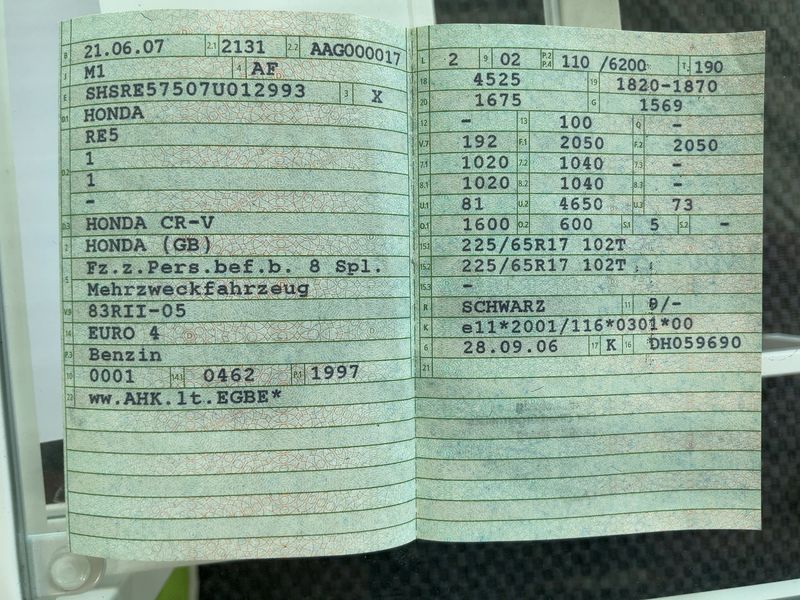 B 21.06.07 2.1 2131 2.2 AAG000017
J M1 4 AF
E SHSRE57507U012993 3 X
D.1 HONDA
RE5
1
D.2 1
-
D.3 HONDA CR-V
2 HONDA (GB)
5 Fz.z.Pers.bef.b. 8 Spl.
Mehrzweckfahrzeug
V.9 83RII-05
14 EURO 4
P.3 Benzin
10 0001 14.1 0462 P.1 1997
22 ww.AHK.lt.EGBE*
L 2 9 02 P.2 P.4 110 /6200 T 190
18 4525 19 1820-1870
20 1675 G 1569
12 - 13 100 Q -
V.7 192 F.1 2050 F.2 2050
7.1 1020 7.2 1040 7.3 -
8.1 1020 8.2 1040 8.3 -
U.1 81 U.2 4650 U.3 73
O.1 1600 O.2 600 S.1 5 S.2 -
15.1 225/65R17 102T
15.2 225/65R17 102T
15.3 -
R SCHWARZ 11 /-
K e11*2001/116*0301*00
6 28.09.06 17 K 16 DH059690
21